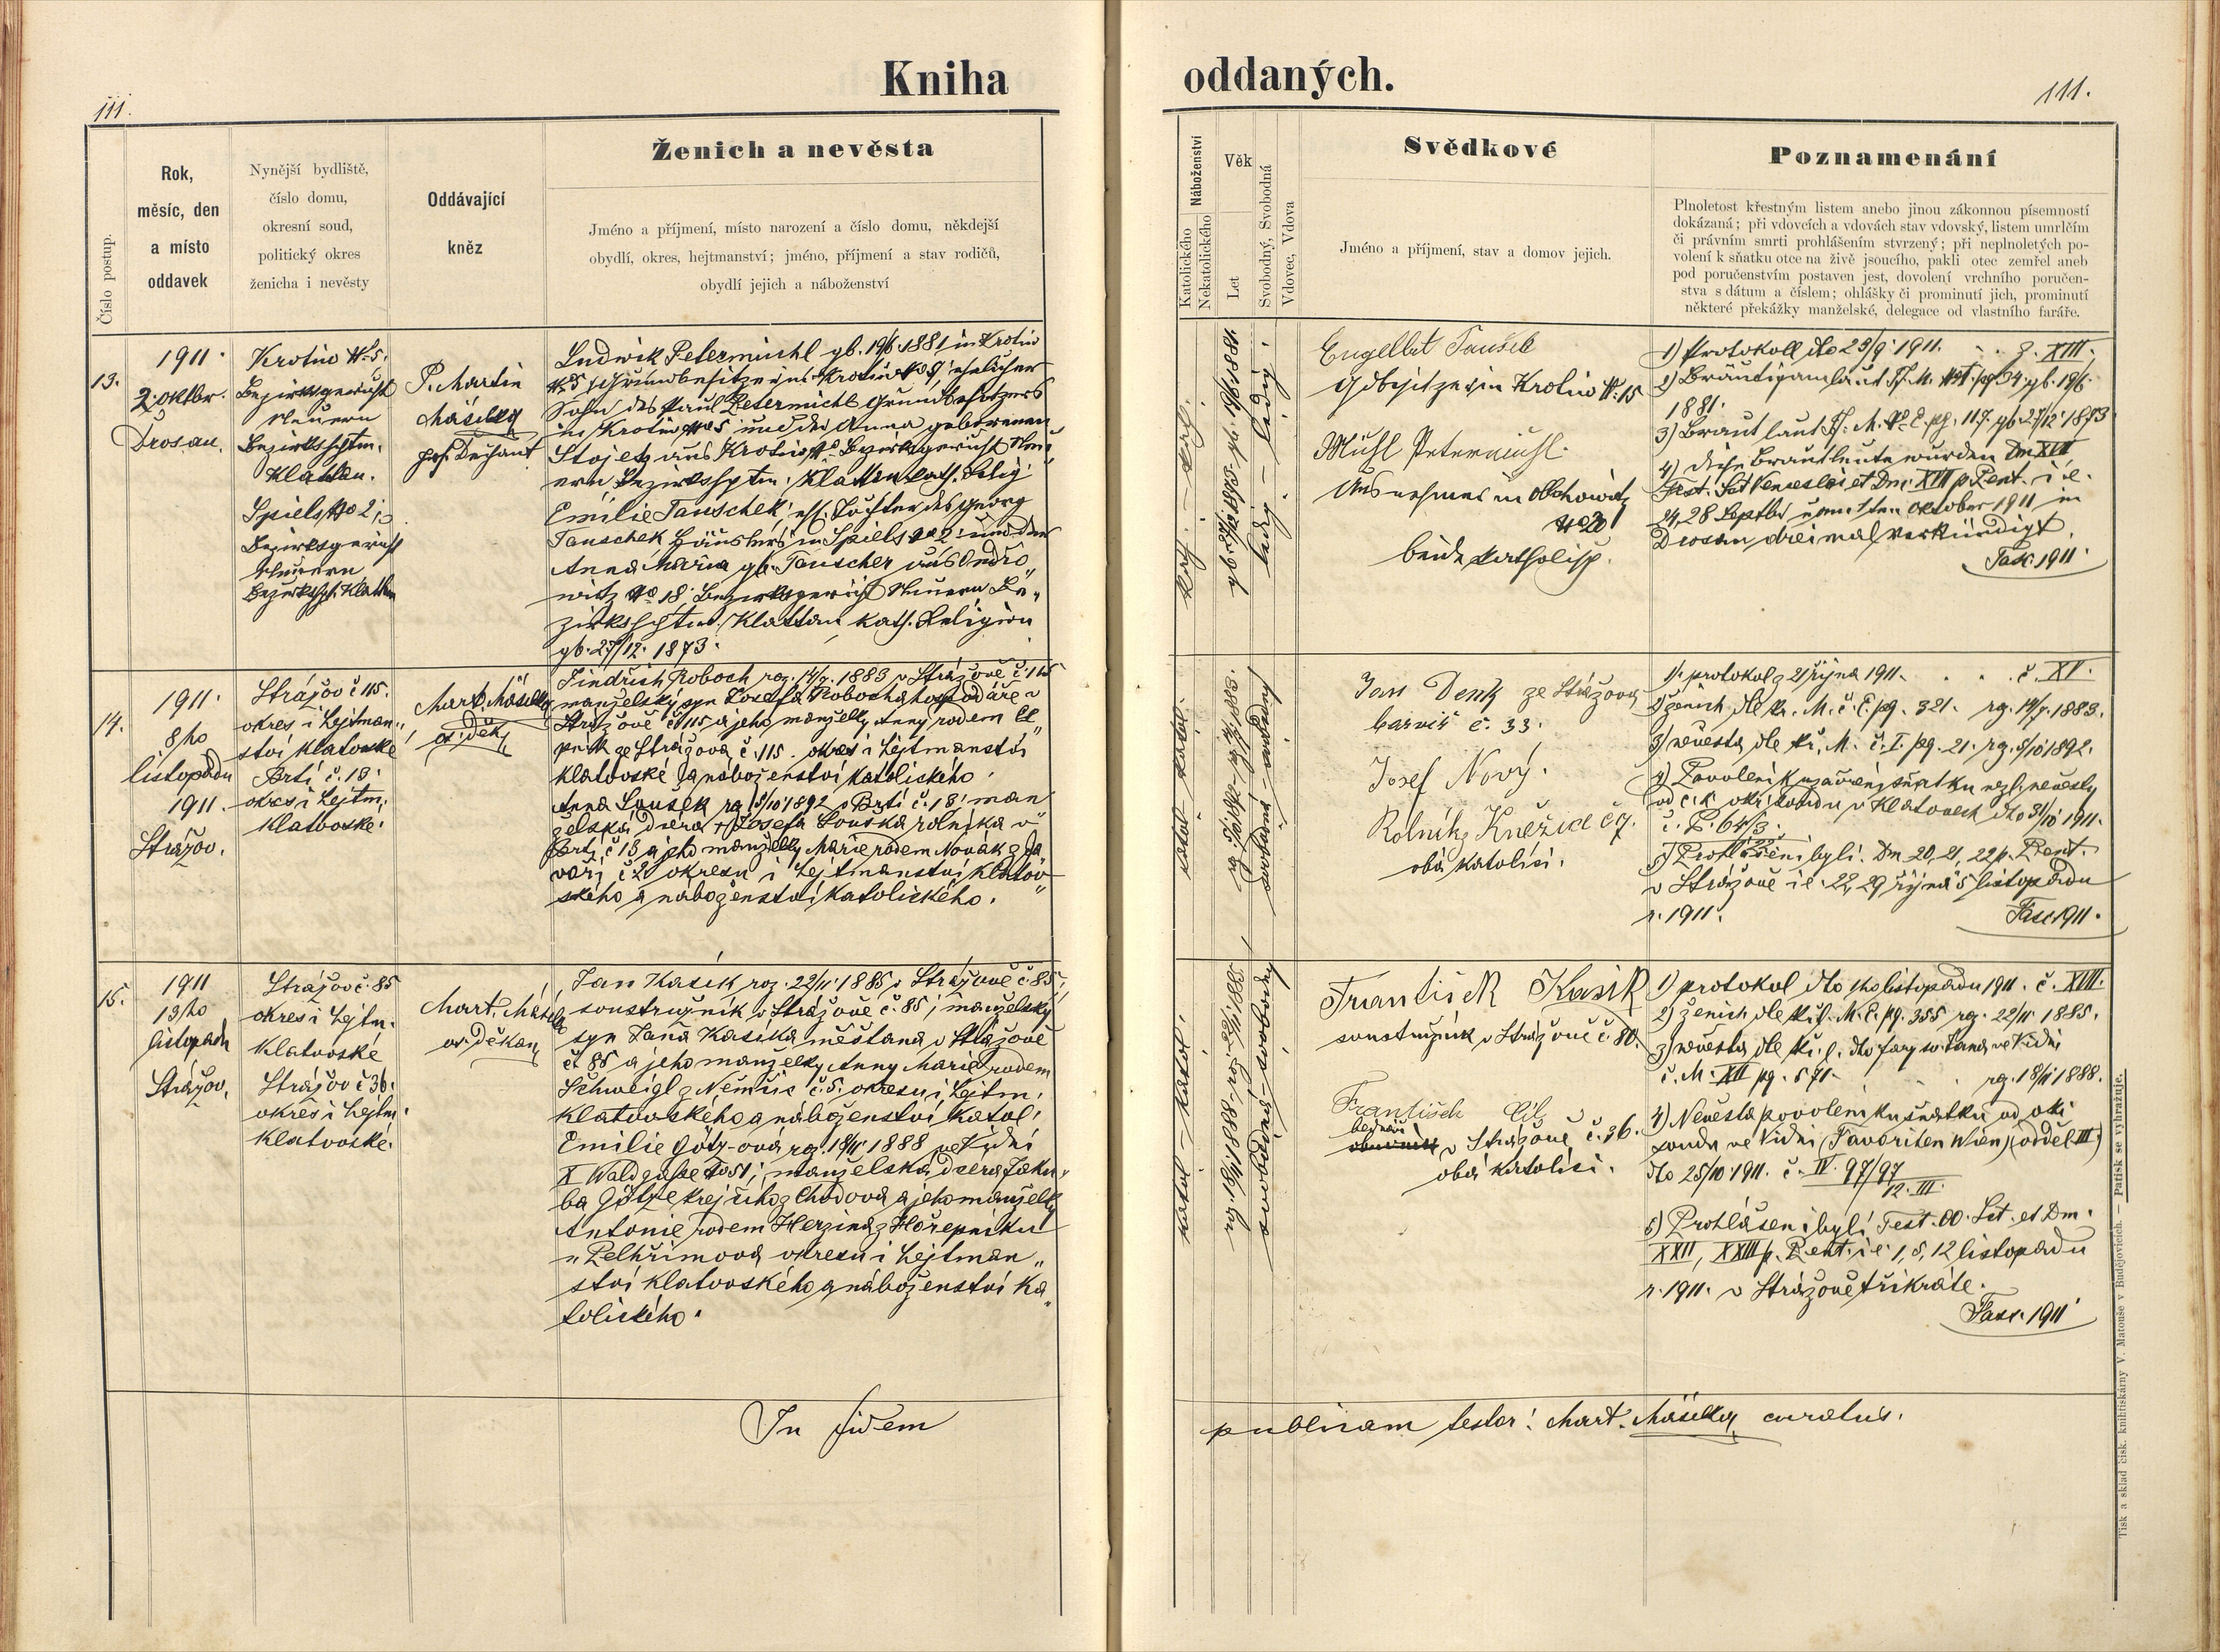 Kniha
111.
Číslo postup.
Rok,
měsíc, den
a místo
oddavek
Nynější bydliště,
číslo domu,
okresní soud,
politický okres
ženicha i nevěsty
Oddávající
kněz
Ženich a nevěsta
Jméno a příjmení, místo narození a číslo domu, někdejší
obydlí, okres, hejtmanství; jméno, příjmení a stav rodičů,
obydlí jejich a náboženství
13.
1911.
2. Oktbr.
Drosau.
Krotiv No 5.
Bezirksgericht
Neuern
Bezirkshptm.
Klattau.
Spiels No 2;
Bezirksgericht
Neuern
Klattau
P. Martin
Mašilka
Dechant
Ludwik Petermichl gb. 19/6 1881 in Krotiv
No 5, Grundbesitzer in Krotiv No 5, ehelicher
Sohn des Paul Petermichl Grundbesitzers
in Krotiv No 5 und der Anna geborenen
Stojetz aus Krotiv No Bezirksgericht Neu„
ern Bezirkshptm. Klattau kath. Relig.
Emilie Tauschek, ehl. Tochter des Georg
Tauschek Häuslers in Spiels No 2 und der
Anna Maria gb. Tauscher aus Ondřo„
witz No 18 Bezirksgericht Neuern Be„
zirkshptm. Klattau kath. Religion
gb. 27/12. 1873.
14.
1911.
8ho
listopadu
1911.
Strážov.
Strážov č 115.
okres i hejtman„
ství Klatovské
Brtí č. 18.
okres i hejtm.
Klatovské.
Mart. Mašilka
os. děk.
Jindřich Roboch roz. 14/7. 1883 v Strážově č. 115
manželský syn Josefa Robocha hospodáře v
Strážově č 115 a jeho manželky Anny rodem
ze Strážova č. 115. okres i hejtmanství
Klatovské a náboženství katolického.
Anna Loušek rz. 5/10 1892 v Brtí č. 18, man„
želská dcera † Josefa Louška rolníka v
Brtí č 18 a jeho manželky Marie rodem Novák z
č 2 okresu i hejtmanství Klatov„
ského a náboženství katolického.
15.
1911
13ho
listopadu
Strážov.
Strážov č. 85
okres i hejtm.
Klatovské
Strážov č 36.
okres i hejtm.
Klatovské.
Mart. Mašilka
os. děkan
Jan Kasík roz. 22/11. 1885 v Strážově č. 85,
soustružník v Strážově č. 85, manželský
syn Jana Kasíka měšťana v Strážově
č. 85 a jeho manželky Anny Marie rodem
Schweigl z Němčic č. 5. okresu i hejtm.
klatovského a náboženství katol.
Emilie Götz-ová rz. 18/11. 1888 ve Vídni
X Waldgasse No 51, manželská dcera Jaku„
ba Götze krejčího z Chodova a jeho manželky
Antonie rodem Herzina z Hořepníku
u Pelhřimova okresu i hejtman„
ství klatovského a náboženství ka„
tolického.
In fidem
oddaných.
111.
Náboženství
Katolického
Nekatolického
Věk
Let
Svobodný, Svobodná
Vdovec, Vdova
Svědkové
Jméno a příjmení, stav a domov jejich.
Poznamenání
Plnoletost křestným listem anebo jinou zákonnou písemností
dokázaná; při vdovcích a vdovách stav vdovský, listem umrlčím
či právním smrti prohlášením stvrzený; při neplnoletých po-
volení k sňatku otce na živě jsoucího, pakli otec zemřel aneb
pod poručenstvím postaven jest, dovolení vrchního poručen-
stva s dátum a číslem; ohlášky či prominutí jich, prominutí
některé překážky manželské, delegace od vlastního faráře.
kath. - kath.
ledig - ledig.
Engelbert Taušek
in Krotiv No 15
Michl Petermichl.
Ausnehmer in
No 20
beide katholisch.
1) Protokoll dto 23/9. 1911. . . Z. XIII.
2) Bräutigam laut Tf. M. pg 54. gb. 19/6.
1881.
3) Braut laut Tf. M. pg. 117. gb. 27/12. 1873
4) diese Brautleute wurden Dm XVI,
Fest. Sct Venceslai et Dm. XVII p. Pent. i. e.
24, 28 Septbr und 1ten Oktober 1911 in
Drosau dreimal verkündigt.
Fasc. 1911.
katol - katol.
Jan Denk ze Strážova
barvíř č. 33.
Josef Nový.
Rolník z Kněžic č 7.
oba katolíci.
1) protokol z 21 října 1911. . . . č. XV.
2) ženich dle kř. M. č. E. pg. 321. rz. 14/7. 1883.
3) nevěsta dle kř. M. č. I. pg. 21. rz. 5/10 1892.
4) Povolení k uzavření sňatku nezl. nevěsty
od c. k. okr. soudu v Klatovech dto 31/10 1911.
č. P. 64/3
5) Prohlášeni byli. Dm 20, 21, 22 p. Pent.
v Strážově i e. 22, 29 října 5 listopadu
r. 1911.
Fasc 1911.
katol - katol.
svobodná - svobodný
František Kasík
soustružník v Strážově č. 80.
František Cíl
bednář
v Strážově č. 36.
oba katolíci.
1) protokol dto 1ho listopadu 1911. č. XVII.
2) ženich dle kř. M. E. pg. 355 rz. 22/11. 1885.
3) nevěsta dle kř. l. dto fary sv. Jana ve Vídni
č. M. XII pg. 571 . . rz. 18/11 1888.
4) Nevěsta povolení ku sňatku od okr.
soudu ve Vídni (Favoriten Wien) (odděl III.)
dto 25/10 1911. č. IV. 97/97
12. III.
5) Prohlášeni byli Fest. OO. Sct. et Dm.
XXII, XXIII p. Pent. i e. 1, 5, 12 listopadu
r. 1911. v Strážově třikráte.
Fasc. 1911
publicam testor: Mart. Mašilka, curatus.
Tisk a sklad čísk. knihtiskárny V. Matouše v Budějovicích. — Patisk se vyhražuje.